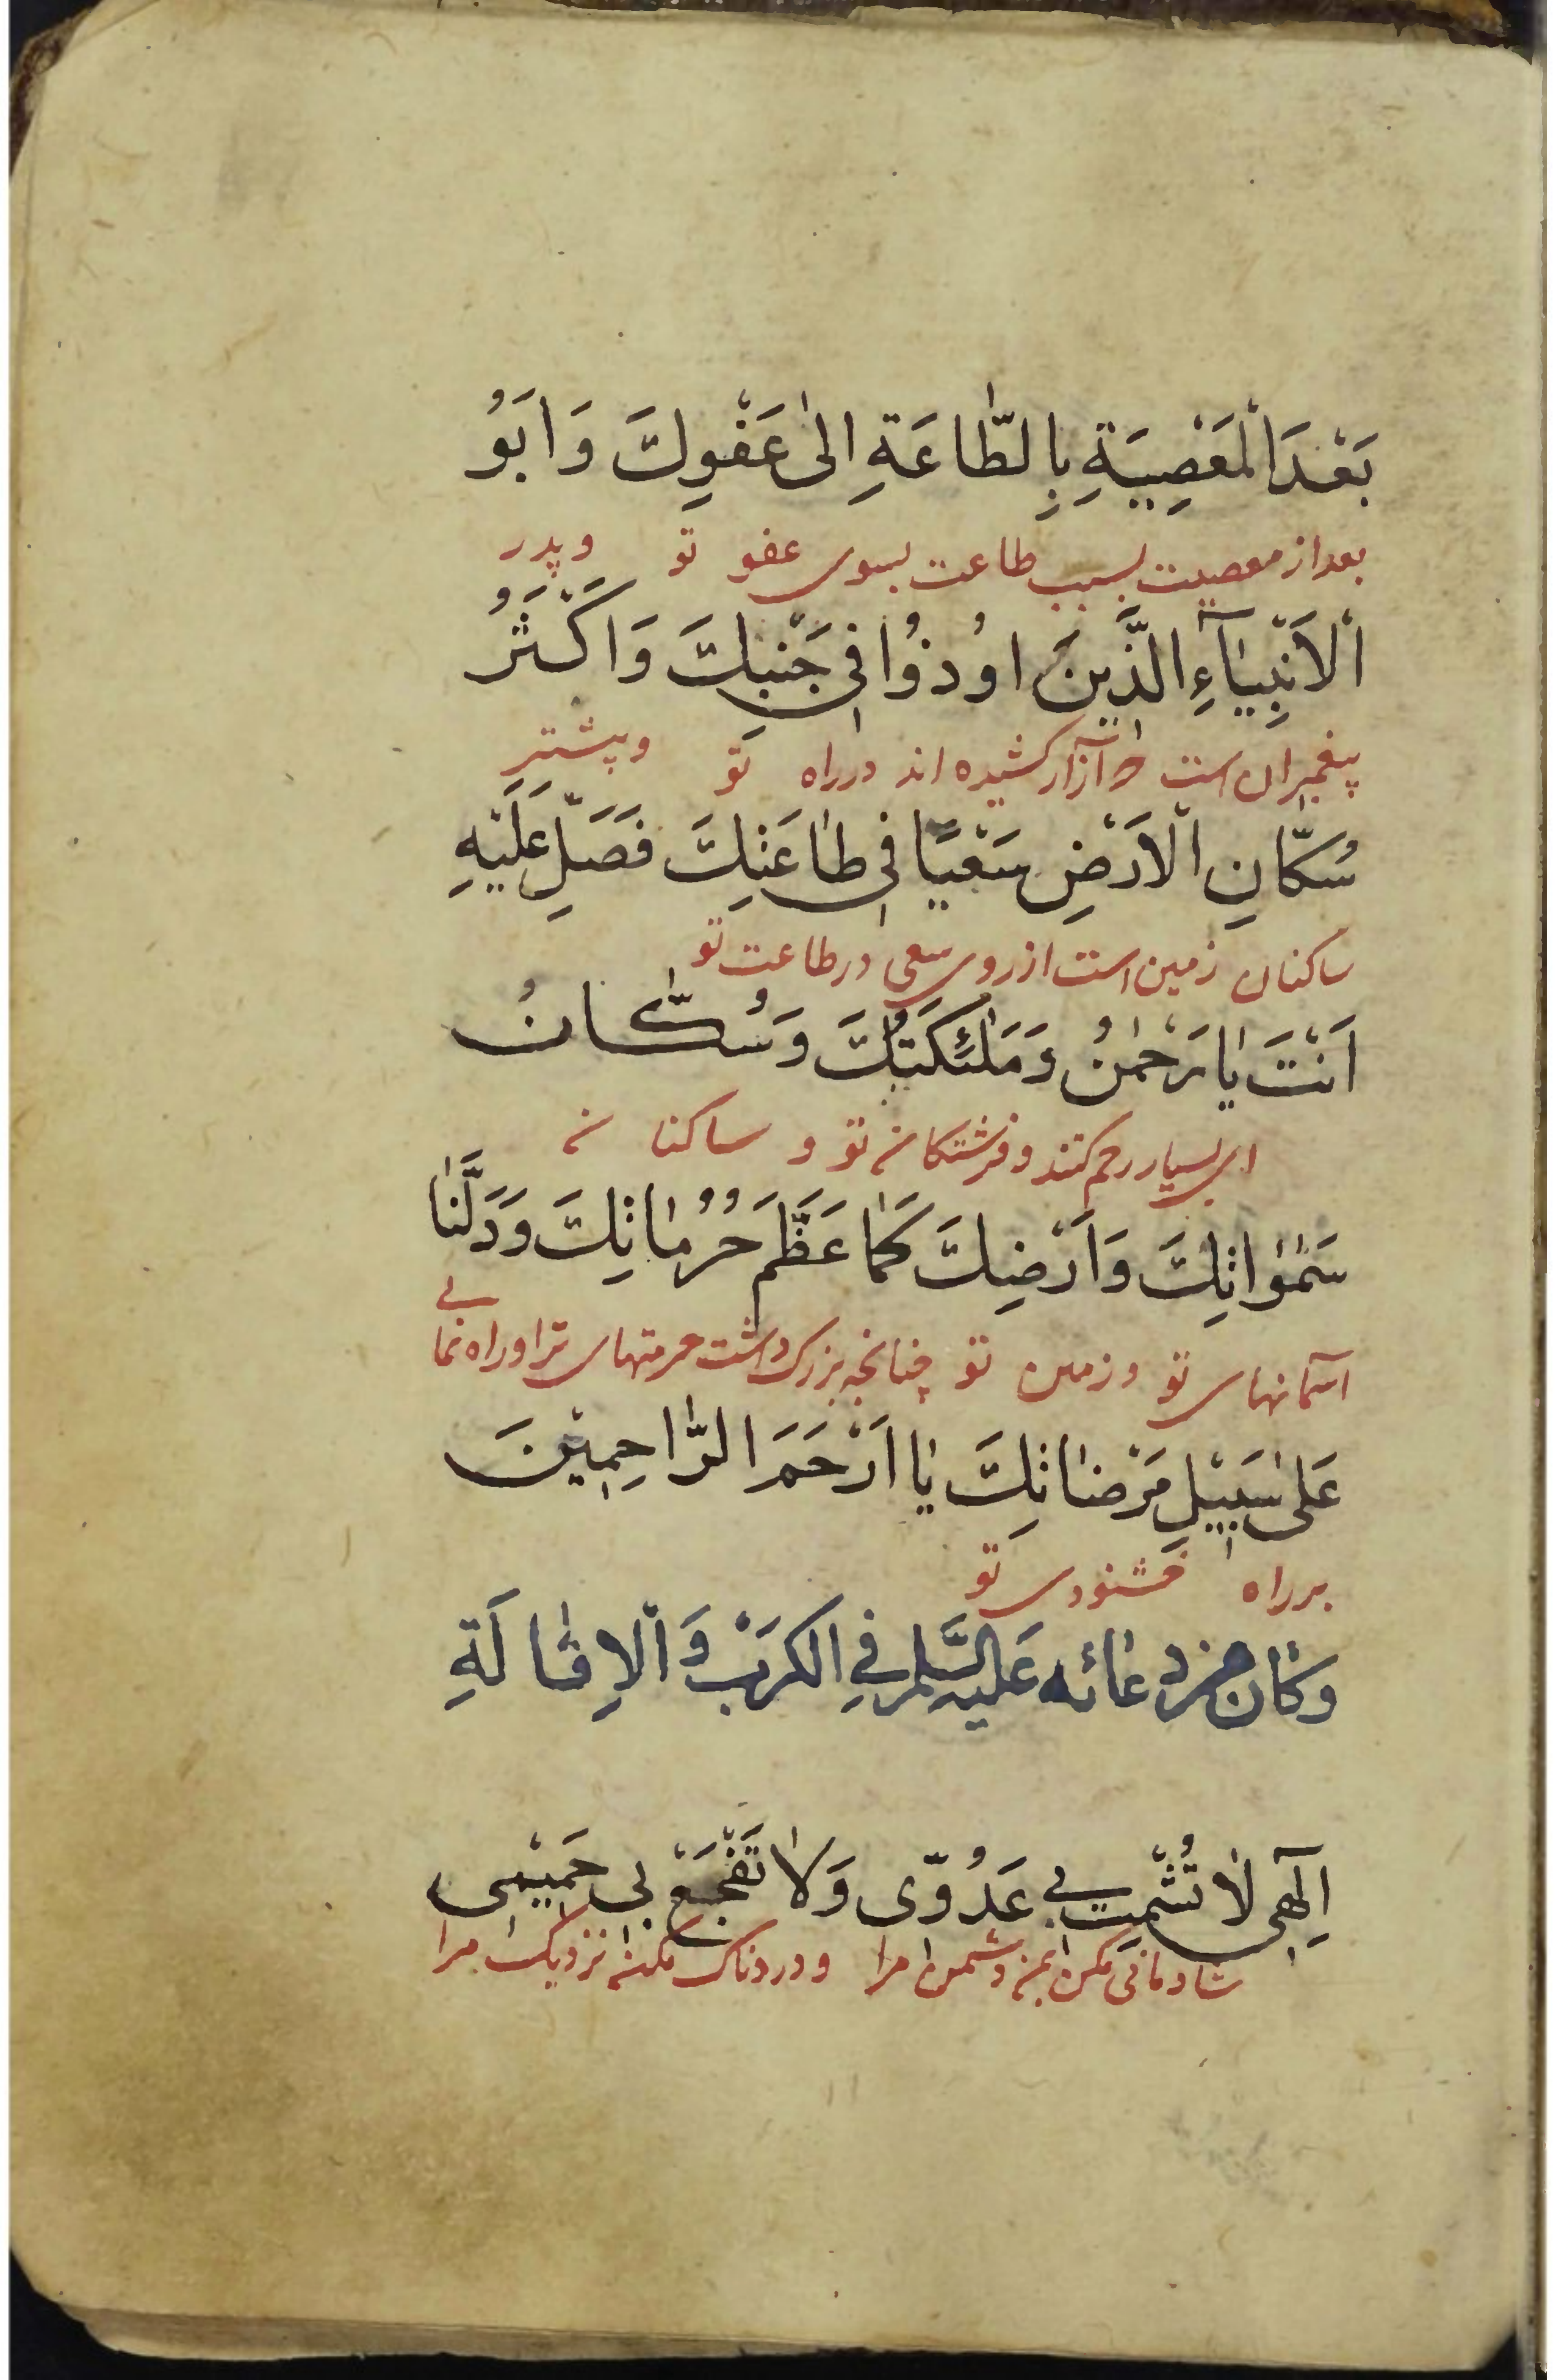 بَعْدَ الْمَعْصِيَةِ بِالطَّاعَةِ اِلىٰ عَفْوِكَ وَاَبُو
بعد از معصیت بسبب طاعت بسوی عفو تو وپدر
الْاَنْبِيَآءِ الَّذِينَ اُوذُوا فِي جَنْبِكَ وَاَكْثَرُ
پیغمبران است که آزار کشیده اند در راه تو وبیشتر
سُكَّانِ الْاَرْضِ سَعْيًا فِي طَاعَتِكَ فَصَلِّ عَلَيْهِ
ساکنان زمین است از روی سعی در طاعت تو
اَنْتَ يَا رَحْمٰنُ وَمَلٰئِكَتُكَ وَسُكَّانُ
ای بسیار رحم کنند وفرشتکان تو و ساکنان
سَمٰوَاتِكَ وَاَرْضِكَ كَمَا عَظَّمَ حُرُمَاتِكَ وَدَلَّنَا
آسمانهای تو وزمین تو چنانچه بزرک داشت حرمتهای ترا وراه نمایی
عَلىٰ سَبِيْلِ مَرْضَاتِكَ يَا اَرْحَمَ الرَّاحِمِيْنَ
بر راه خشنودی تو
وَكَانَ مِنْ دُعَائِهِ عَلَيْهِ السَّلٰمُ فِي الْكَرْبِ وَالْاِقَالَةِ
اِلٰهِي لَا تُشْمِتْ بِي عَدُوِّى وَلَا تَفْجَعْ بِي حَمِيْمِى
شادمانی مکن بمن دشمن مرا ودردناک مکن نزدیک مرا